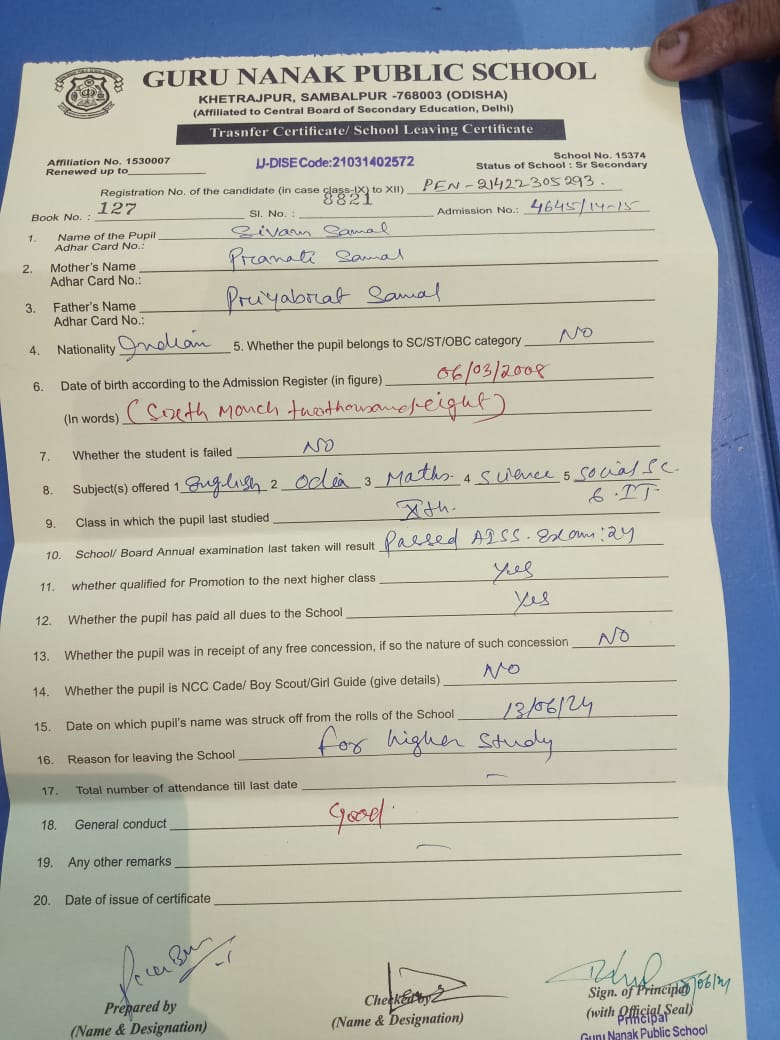 GURU NANAK PUBLIC SCHOOL
KHETRAJPUR, SAMBALPUR -768003 (ODISHA)
(Affiliated to Central Board of Secondary Education, Delhi)
Trasnfer Certificate/ School Leaving Certificate
Affiliation No. 1530007 U-DISE Code:21031402572 School No. 15374
Renewed up to Status of School : Sr Secondary
Registration No. of the candidate (in case class-IX) to XII) PEN-21422305293.
Book No. : 127 Sl. No. : 8821 Admission No.: 4645/14-15
1. Name of the Pupil Sivam Samal
Adhar Card No.:
2. Mother's Name Pranati Samal
Adhar Card No.:
3. Father's Name Priyabrat Samal
Adhar Card No.:
4. Nationality Indian 5. Whether the pupil belongs to SC/ST/OBC category NO
6. Date of birth according to the Admission Register (in figure) 06/03/2008
(In words) (Sixth March twothousand eight)
7. Whether the student is failed NO
8. Subject(s) offered 1 English 2 Odia 3 Maths. 4 Science 5 Social Sc.
6. IT.
9. Class in which the pupil last studied Xth.
10. School/ Board Annual examination last taken will result Passed AISS. Exam:24
11. whether qualified for Promotion to the next higher class Yes
12. Whether the pupil has paid all dues to the School Yes
13. Whether the pupil was in receipt of any free concession, if so the nature of such concession NO
14. Whether the pupil is NCC Cade/ Boy Scout/Girl Guide (give details) NO
15. Date on which pupil's name was struck off from the rolls of the School 13/06/24
16. Reason for leaving the School for higher study
17. Total number of attendance till last date —
18. General conduct Good.
19. Any other remarks —
20. Date of issue of certificate
Prepared by Checked by Sign. of Principal
(Name & Designation) (Name & Designation) (with Official Seal)
Principal
Guru Nanak Public School